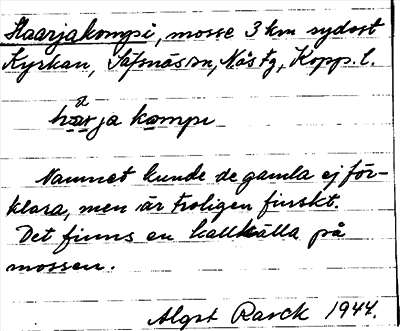 Haarjakompi, mosse 3 km sydost
Kyrkan, Säfsnäs sn, Näs fg, Kopp. l.
harja kompi
Namnet kunde de gamla ej för-
klara, men är troligen finskt.
Det finns en kallkälla på
mossen.
Algot Rarck 1944.